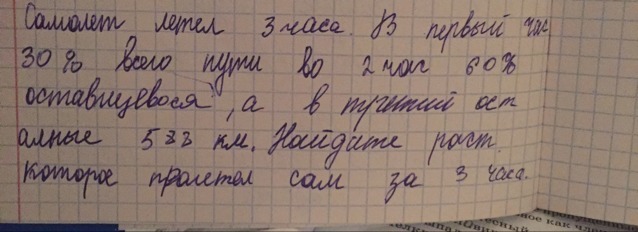 Самолет летел 3 часа. В первый час
30% всего пути во 2 час 60%
оставшегося, а в третий ост
алные 533 км. Найдите раст.
которое пролетел сам за 3 часа.